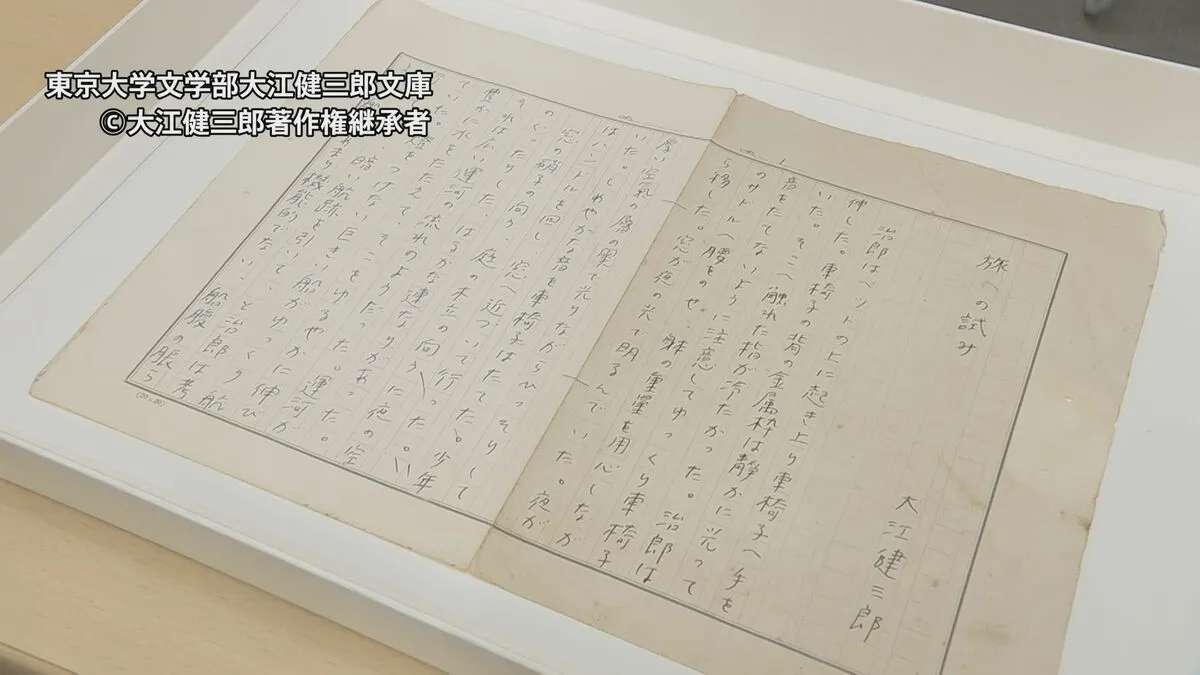 東京大学文学部大江健三郎文庫
©大江健三郎著作権継承者
1
旅への試み
大江健三郎
治郎はベッドの上に起き上り車椅子へ手を
伸した。車椅子の背の金属枠は静かに光って
いた。そこへ触れた指が冷たかった。治郎は
音をたてないように注意してゆっくり車椅子
のサドルへ腰をのせ、躰の重量を用心しなが
ら移した。窓が夜の光で明るんでいた。夜が
厚い空気の層の奥で光りながらひっそりして
いた。しめやかな音を車椅子はたてた。少年
はハンドルを回し、窓へ近づいて行った。
窓の硝子の向う、庭の木立の向うに夜の空
のく。たりした、はるかな連なりがあった。
それは広い運河の流れのようだった。
豊かに水をたたえて、そこをゆるやかに運河が
燈をつけ、
暗けない巨きい船がゆっくり伸び
あまり航跡を引いて、と治郎は考
機能的でない、船腹の脹ら
(20×20)